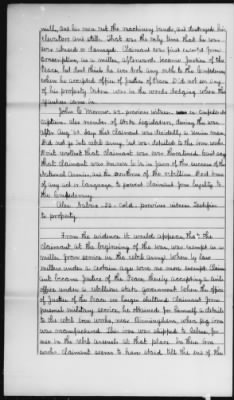 mill, and his men cut the machinery bands, and destroyed his
elevators and stills. That was the only time that he was
ever abused or damaged. Claimant was first exempt from
Conscription, as a miller, afterwards became Justice of the
Peace, but don't think he ever took any oath to the Confederacy
when he accepted office of Justice of Peace. Did not see any
of his property taken was in the woods hiding when the
Yankees came in.
John C. Morrow as previous witness in Confederate
captain, also member of State Legislature, during the war
after Aug. 62 day that Claimant was decidedly a Union man
Did not go into rebel army, but was detailed to the iron works
Don't recollect that Claimant was ever threatened but say
that Claimant was known to be in favor of the success of the
National Armies, and the overthrow of the rebellion. Had none
of any act or language to prevent claimant's from loyalty to
the Confederacy.
Alex Nabers 22 Cold. previous witness testifies
to property.
From the evidence it would appear, that the
Claimant at the beginning of the war, was exempt as a
miller from service in the rebel army, when by law
millers under a certain age were no more exempt Claim
ant became Justice of the Peace thereby accepting a civil
office under a rebellious state government. When the office
of Justice of the Peace no longer shielded Claimant from
personal military service, he obtained for himself a detail
to the rebel iron works, near Birmingham, where pig iron
was manufactured. This iron was shipped to Selma for
use in the rebel arsenals at that place. In these iron
works Claimant seems to have staid till the end of the